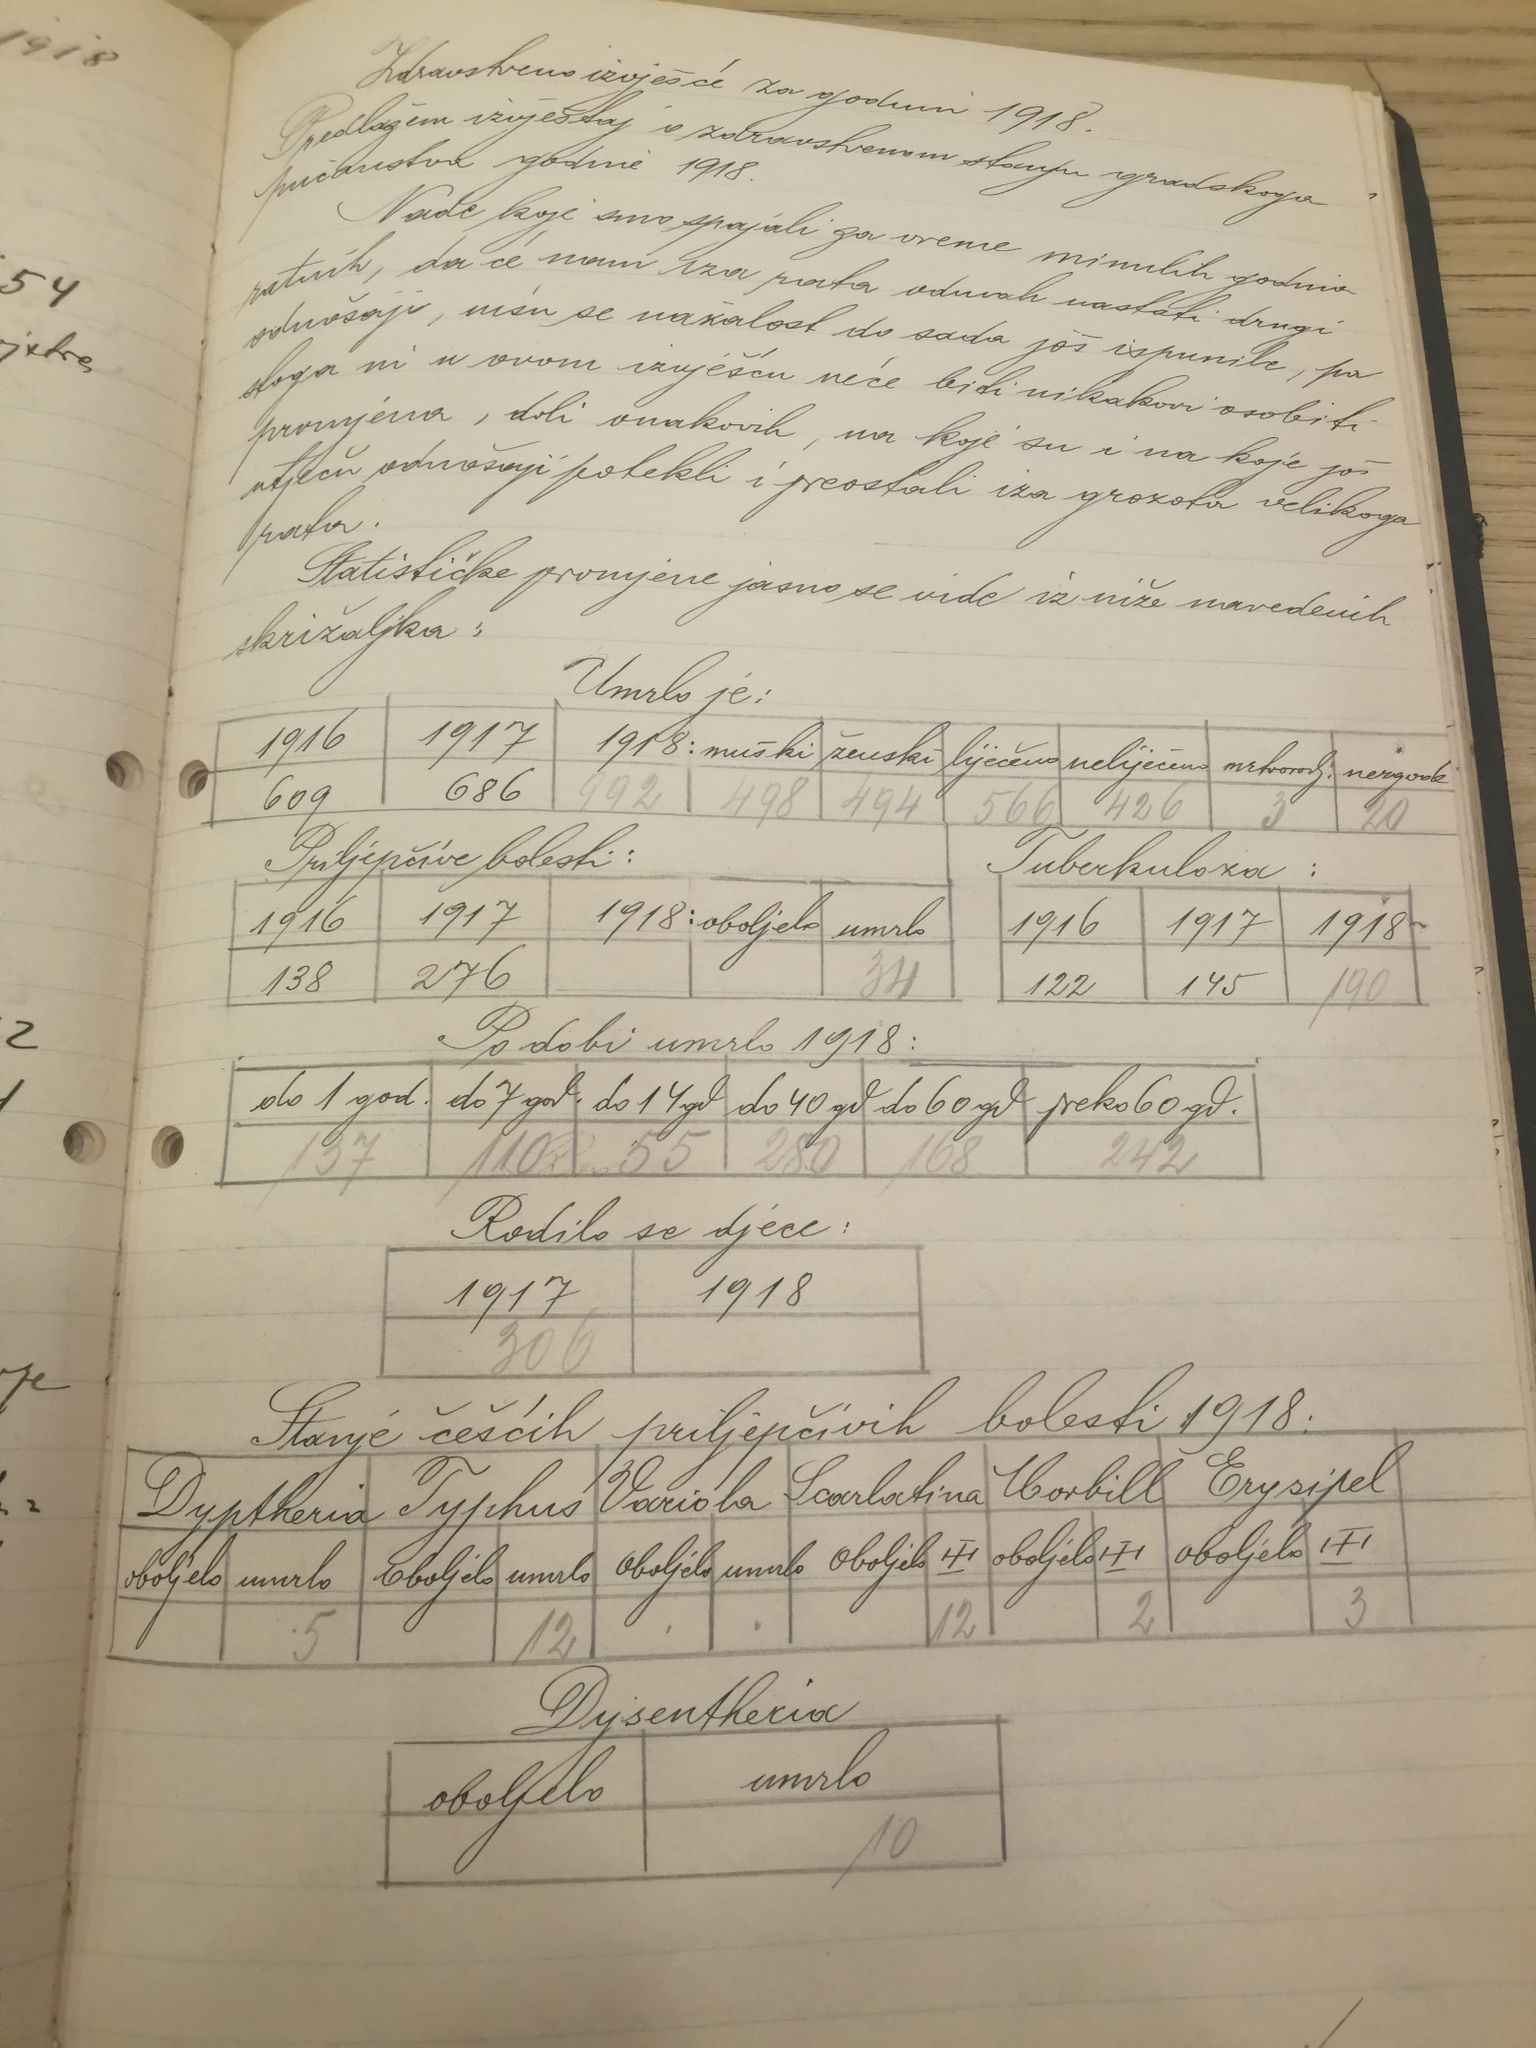 1918
54
2
Zdravstveno izvješće za godinu 1918.
Predlažem izvještaj o zdravstvenom stanju gradskoga
pučanstva godine 1918.
Nade koje smo spajali za vreme minulih godina
ratnih, da će nam iza rata odmah nastati drugi
odnošaji, nisu se nažalost do sada još ispunile, pa
stoga ni u ovom izvješću neće biti nikakovi osobiti
promjena, doli onakovih, na koje su i na koje još
utječu odnošaji potekli i preostali iza grozota velikoga
rata.
Statističke promjene jasno se vide iz niže navedenih
skrižaljka:
Umrlo je:
1916 1917 1918: muški ženski liječeno neliječeno mrtvorodj.
609 686 992 498 494 566 426 3 20
Priljepčive bolesti: Tuberkuloza:
1916 1917 1918: oboljelo umrlo 1916 1917 1918
138 276 34 122 145 190
Po dobi umrlo 1918:
do 1 god. do 7 god. do 14 gd do 40 gd do 60 gd preko 60 gd.
137 110 55 280 168 242
Rodilo se djece:
1917 1918
306
Stanje češćih priljepčivih bolesti 1918:
Dyptheria Typhus Variola Scarlatina Morbill Erysipel
oboljelo umrlo oboljelo umrlo oboljelo umrlo oboljelo oboljelo oboljelo
5 12 . . 12 2 3
Dysentheria
oboljelo umrlo
10